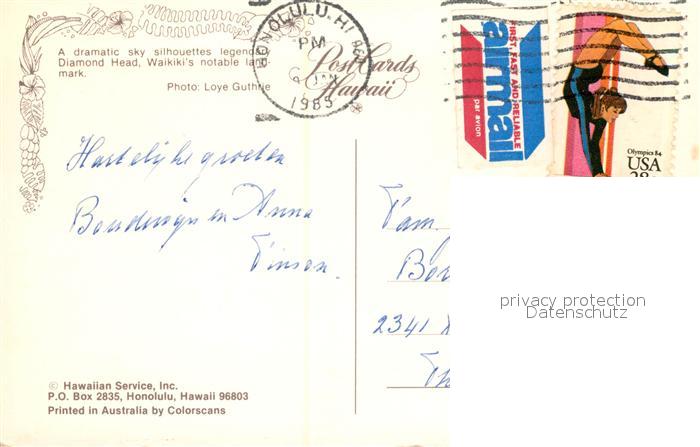 A dramatic sky silhouettes legend
Diamond Head, Waikiki's notable land-
mark.
Photo: Loye Guthrie
HONOLULU, HI
PM
JAN
1985
PostCards
Hawaii
FIRST, FAST AND RELIABLE
airmail
par avion
Olympics 84
USA
28
Hartelijke groeten
Boudewijn en Anna
Vinson.
Fam.
2341
privacy protection
Datenschutz
© Hawaiian Service, Inc.
P.O. Box 2835, Honolulu, Hawaii 96803
Printed in Australia by Colorscans